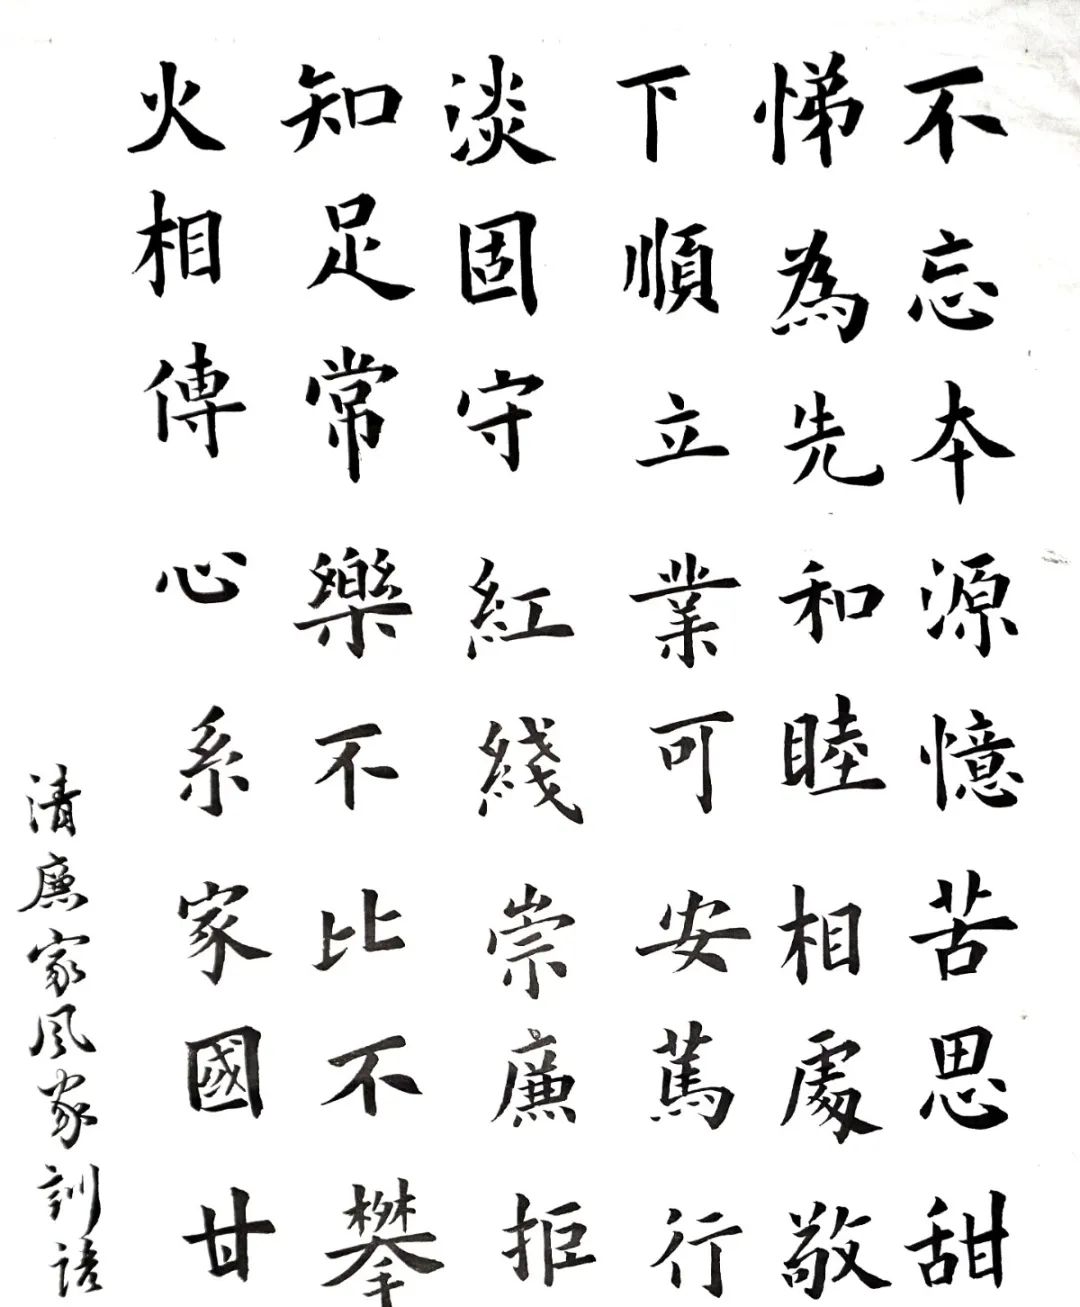 不忘本源憶苦思甜
悌為先和睦相處敬
下順立業可安篤行
淡固守紅綫崇廉拒
知足常樂不比不攀
火相傳心系家國甘
清廉家風家訓語